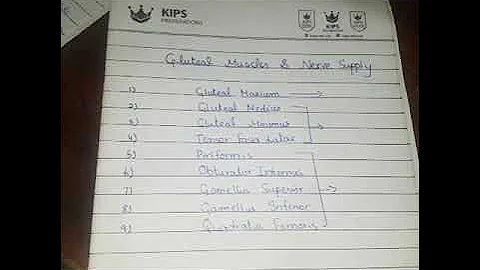 KIPS
PREPARATIONS
Gluteal Muscles & Nerve Supply
1) Gluteal Maximum →
2) Gluteal Medius
3) Gluteal Minimus →
4) Tensor Fascia Latae
5) Piriformis
6) Obturator Internus
7) Gamellus Superior →
8) Gamellus Inferior
9) Quadratus Femoris